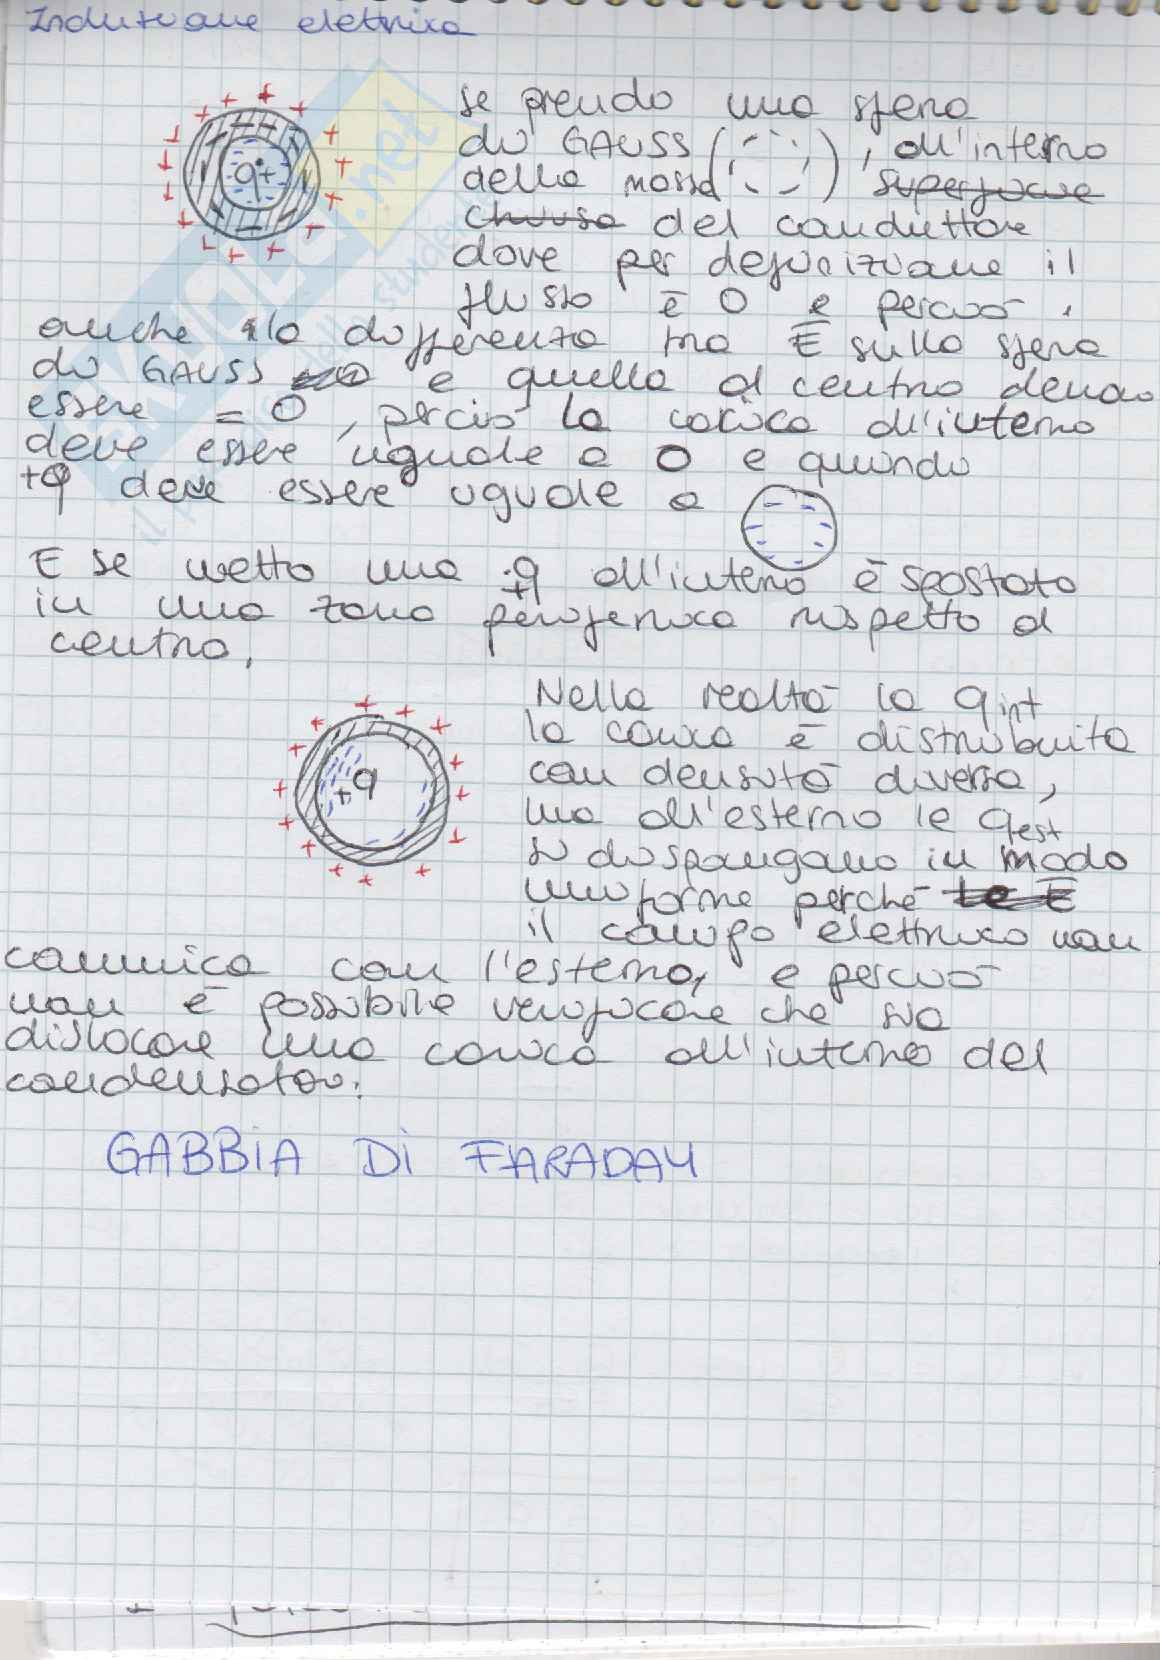 Induzione elettrica
se prendo una sfera
di GAUSS ( ), all'interno
della massa superficie
chiusa del conduttore
dove per definizione il
flusso è 0 e perciò
anche la differenza tra E sulla sfera
di GAUSS e quella al centro devono
essere = 0, perciò la carica all'interno
deve essere uguale a 0 e quindi
+q deve essere uguale a
E se metto una +q all'interno è spostata
in una zona periferica rispetto al
centro.
Nella realtà la q int
la carica è distribuita
con densità diversa,
ma all'esterno le q est
si dispongano in modo
uniforme perché le E
il campo elettrico non
comunica con l'esterno, e perciò
non è possibile verificare che sia
dislocare una carica all'interno del
condensatore.
GABBIA DI FARADAY
q+
+q
SKUOLA.net